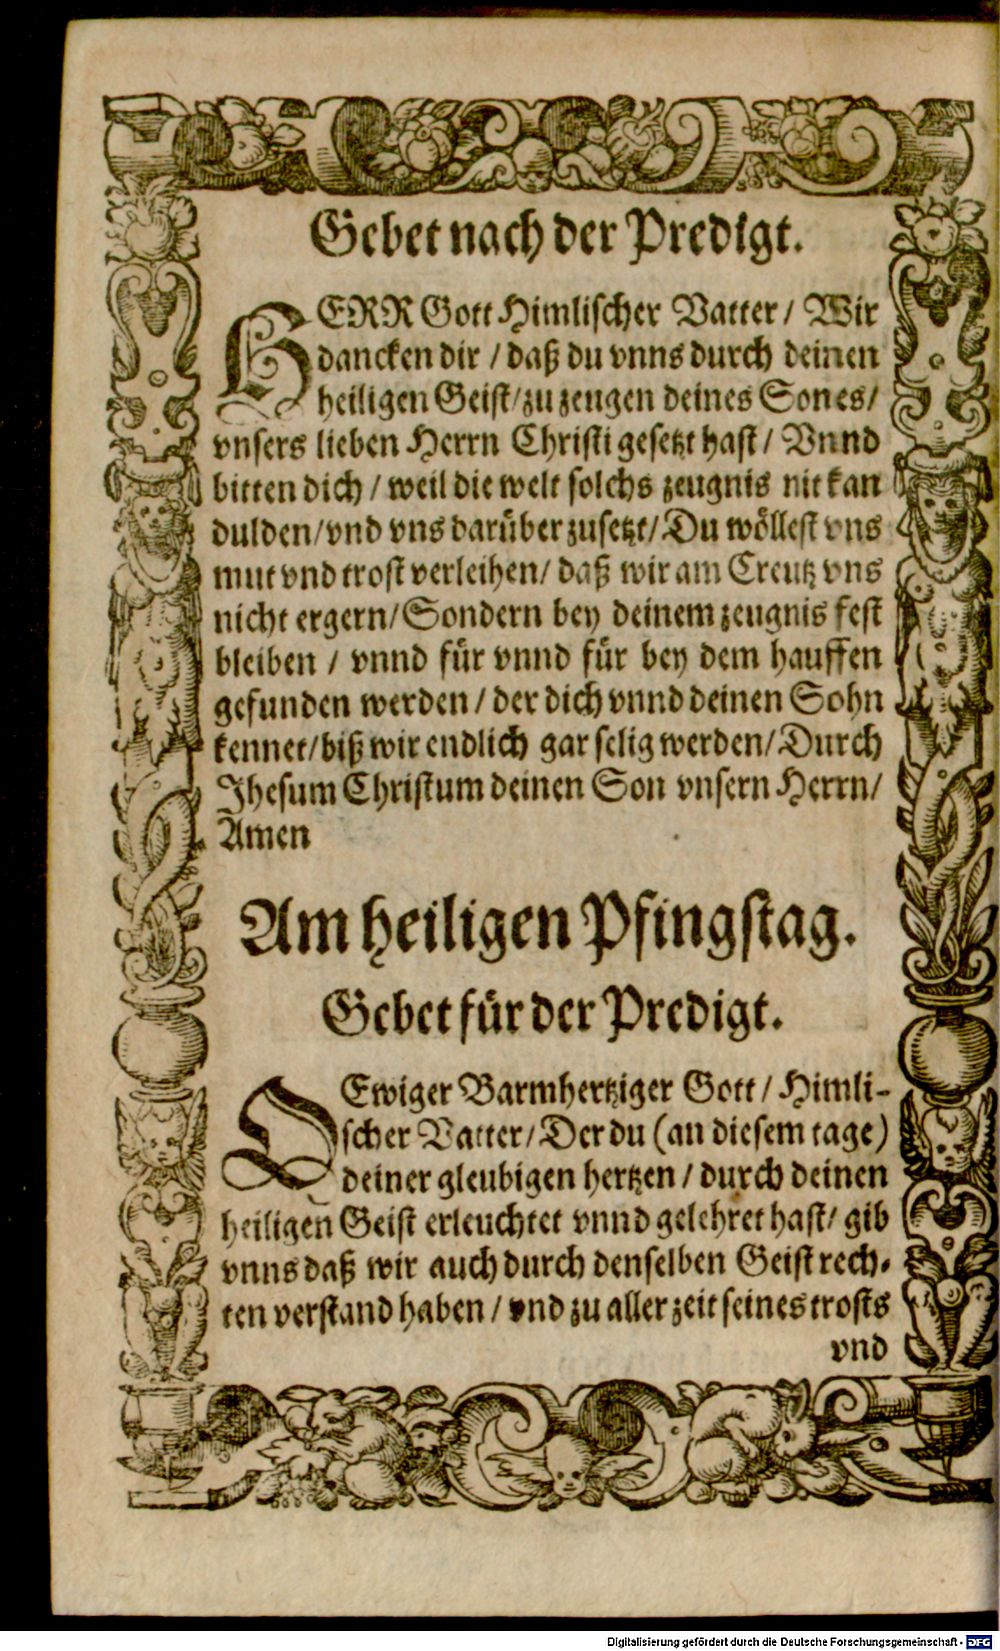 Gebet nach der Predigt.
HERR Gott Himlischer Vatter / Wir
dancken dir / daß du vnns durch deinen
heiligen Geist / zu zeugen deines Sones /
vnsers lieben Herrn Christi gesetzt hast / Vnnd
bitten dich / weil die welt solchs zeugnis nit kan
dulden / vnd vns darüber zusetzt / Du wöllest vns
mut vnd trost verleihen / daß wir am Creutz vns
nicht ergern / Sondern bey deinem zeugnis fest
bleiben / vnnd für vnnd für bey dem hauffen
gefunden werden / der dich vnnd deinen Sohn
kennet / biß wir endlich gar selig werden / Durch
Jhesum Christum deinen Son vnsern Herrn /
Amen
Am heiligen Pfingstag.
Gebet für der Predigt.
O Ewiger Barmhertziger Gott / Himli-
scher Vatter / Der du (an diesem tage)
deiner gleubigen hertzen / durch deinen
heiligen Geist erleuchtet vnnd gelehret hast / gib
vnns daß wir auch durch denselben Geist rech-
ten verstand haben / vnd zu aller zeit seines trosts
vnd
Digitalisierung gefördert durch die Deutsche Forschungsgemeinschaft - DFG